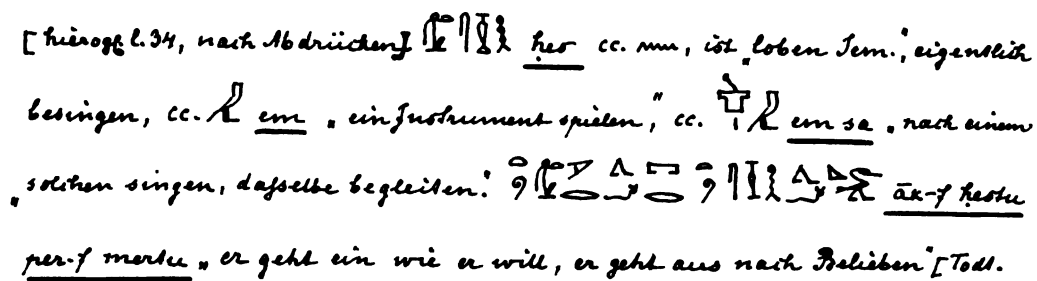 [hierogl. l. 34, nach Abdrücken] ḥes cc. nnu, ist „loben Jem.“, eigentlich
besingen, cc. em „ein Instrument spielen“, cc. em sa „nach einem
„solchen singen, dasselbe begleiten“. āx-f ḥestu
per-f mertu „er geht ein wie er will, er geht aus nach Belieben“ [Todt.